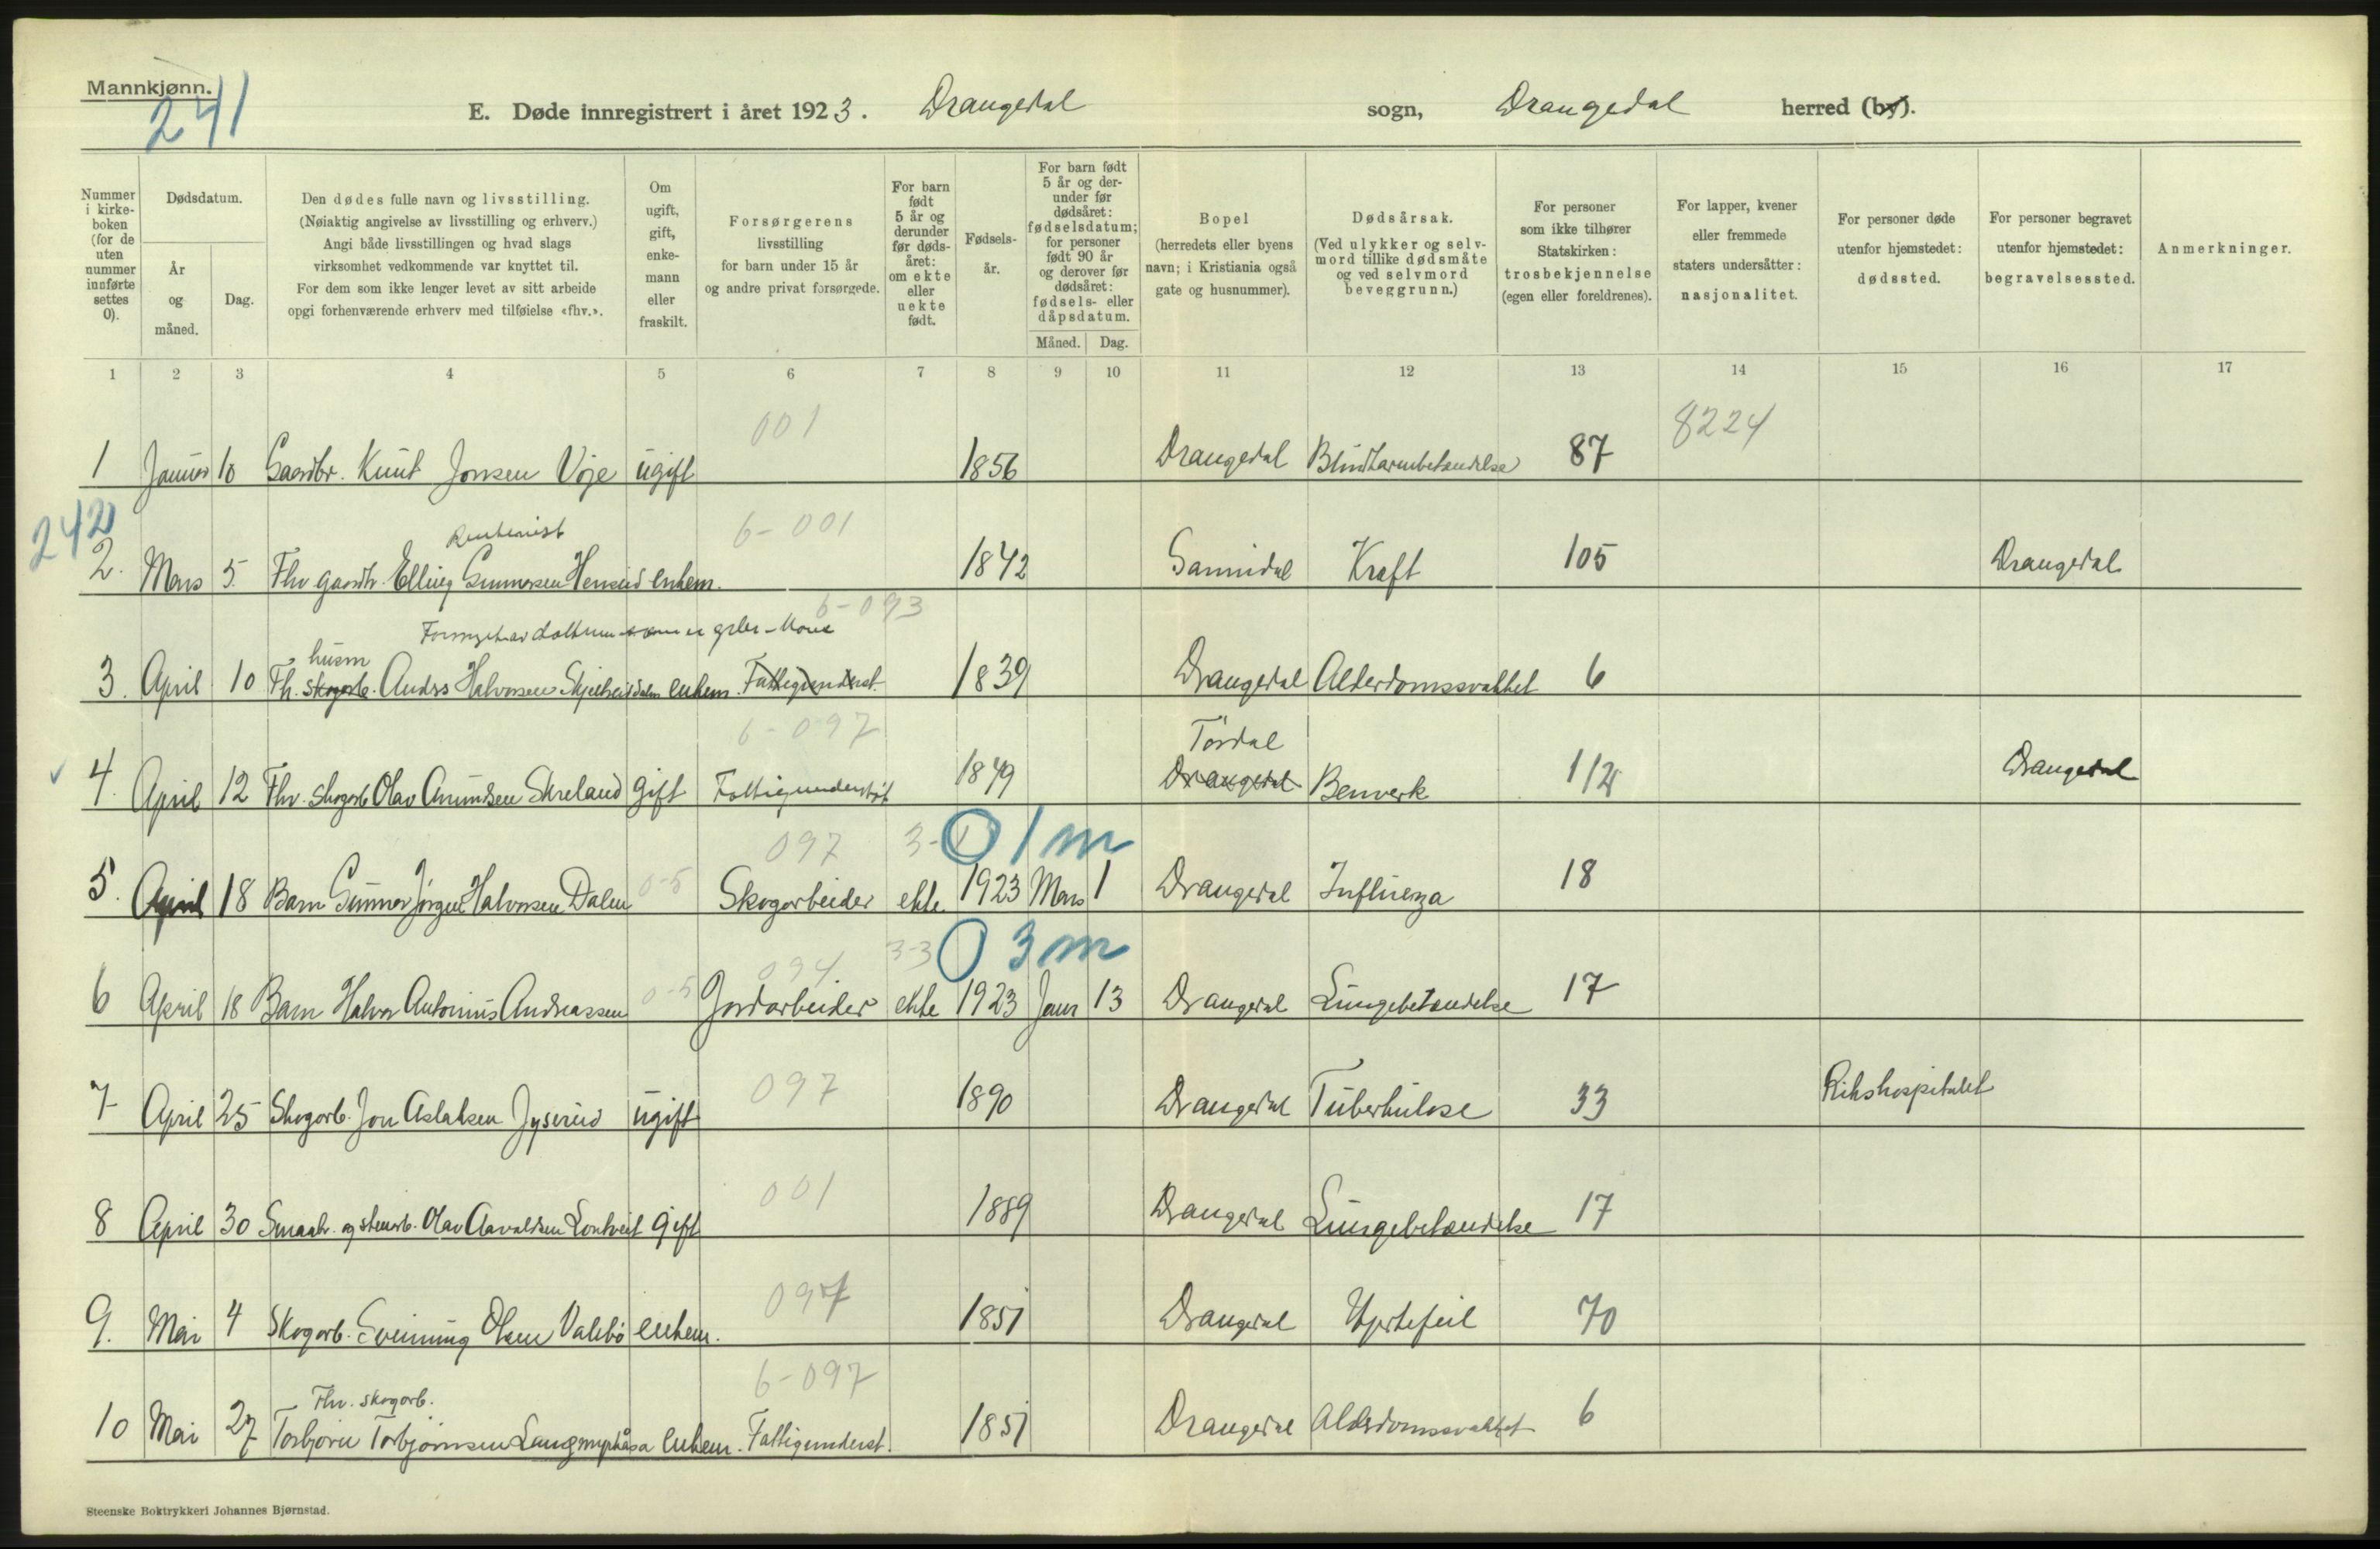 Mannkjønn.
241
E. Døde innregistrert i året 1923. Drangedal sogn, Drangedal herred (by).
Nummer i kirkeboken (for de uten nummer innførte settes 0).
Dødsdatum.
År og måned.
Dag.
Den dødes fulle navn og livsstilling.
(Nøiaktig angivelse av livsstilling og erhverv.)
Angi både livsstillingen og hvad slags
virksomhet vedkommende var knyttet til.
For dem som ikke lenger levet av sitt arbeide
opgi forhenværende erhverv med tilføielse «fhv.».
Om ugift, gift, enkemann eller fraskilt.
Forsørgerens livsstilling for barn under 15 år og andre privat forsørgede.
For barn født 5 år og derunder før dødsåret: om ekte eller uekte født.
Fødselsår.
For barn født 5 år og derunder før dødsåret: fødselsdatum; for personer født 90 år og derover før dødsåret: fødsels- eller dåpsdatum.
Måned. Dag.
Bopel (herredets eller byens navn; i Kristiania også gate og husnummer).
Dødsårsak. (Ved ulykker og selvmord tillike dødsmåte og ved selvmord beveggrunn.)
For personer som ikke tilhører Statskirken: trosbekjennelse (egen eller foreldrenes).
For lapper, kvener eller fremmede staters undersåtter: nasjonalitet.
For personer døde utenfor hjemstedet: dødssted.
For personer begravet utenfor hjemstedet: begravelsessted.
Anmerkninger.
1 2 3 4 5 6 7 8 9 10 11 12 13 14 15 16 17
001 8224
1 Januar 10 Gaardbr. Knut Jonsen Voje ugift 1856 Drangedal Blindtarmbetændelse 87
242
Rentenist 6-001
2. Mars 5 Fhv gaardbr. Elling Gunnarsen Henseid enkem. 1842 Sannidal Kraft 105 Drangedal
6-093
husm
3. April 10 Fh. skogarb. Anders Halvorsen enkem. Fattigunderst. 1839 Drangedal Alderdomssvakhet 6
6-097 Tørdal
4. April 12 Fhv. skogarb Olav Amundsen Skreland gift Fattigunderstøt 1849 Drangedal Benverk 112 Drangedal
097 3-1 0 1 m
5. April 18 Barn Gunnar Jørgen Halvorsen Dalen 0-5 Skogarbeider ekte 1923 Mars 1 Drangedal Influenza 18
094 3-3 0 3 m
6 April 18 Barn Halvor Antonius Andreassen 0-5 Jordarbeider ekte 1923 Janr 13 Drangedal Lungebetændelse 17
097
7 April 25 Skogarb. Jon Aslaksen Jyserud ugift 1890 Drangedal Tuberkulose 33 Rikshospitalet
001
8 April 30 Smaabr. og stenarb. Olav Aavaldsen Lontveit gift 1889 Drangedal Lungebetændelse 17
097
9. Mai 4 Skogarb. Svenning Olsen Valebø enkem. 1851 Drangedal Hjertefeil 70
6-097
Fhv. skogarb.
10 Mai 27 Torbjørn Torbjørnsen Langmyråsa enkem. Fattigunderst. 1851 Drangedal Alderdomssvakhet 6
Steenske Boktrykkeri Johannes Bjørnstad.